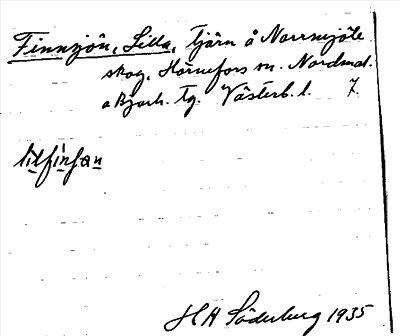 Finnsjön, Lilla, tjärn å Norrmjöle
skog, Hörnefors sn. Nordmal.
o Bjurh. tg. Västerb. l. 7.
lılfinſan
H A Söderberg 1935